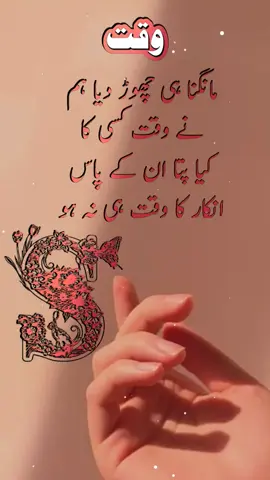 وقت
مانگنا ہی چھوڑ دیا ہم
نے وقت کسی کا
کیا پتا ان کے پاس
انکار کا وقت ہی نہ ہو
S